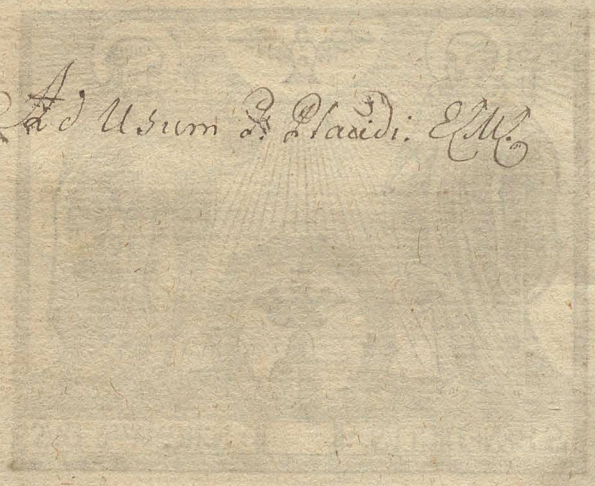 Ad Usum P. Placidi. ESM.